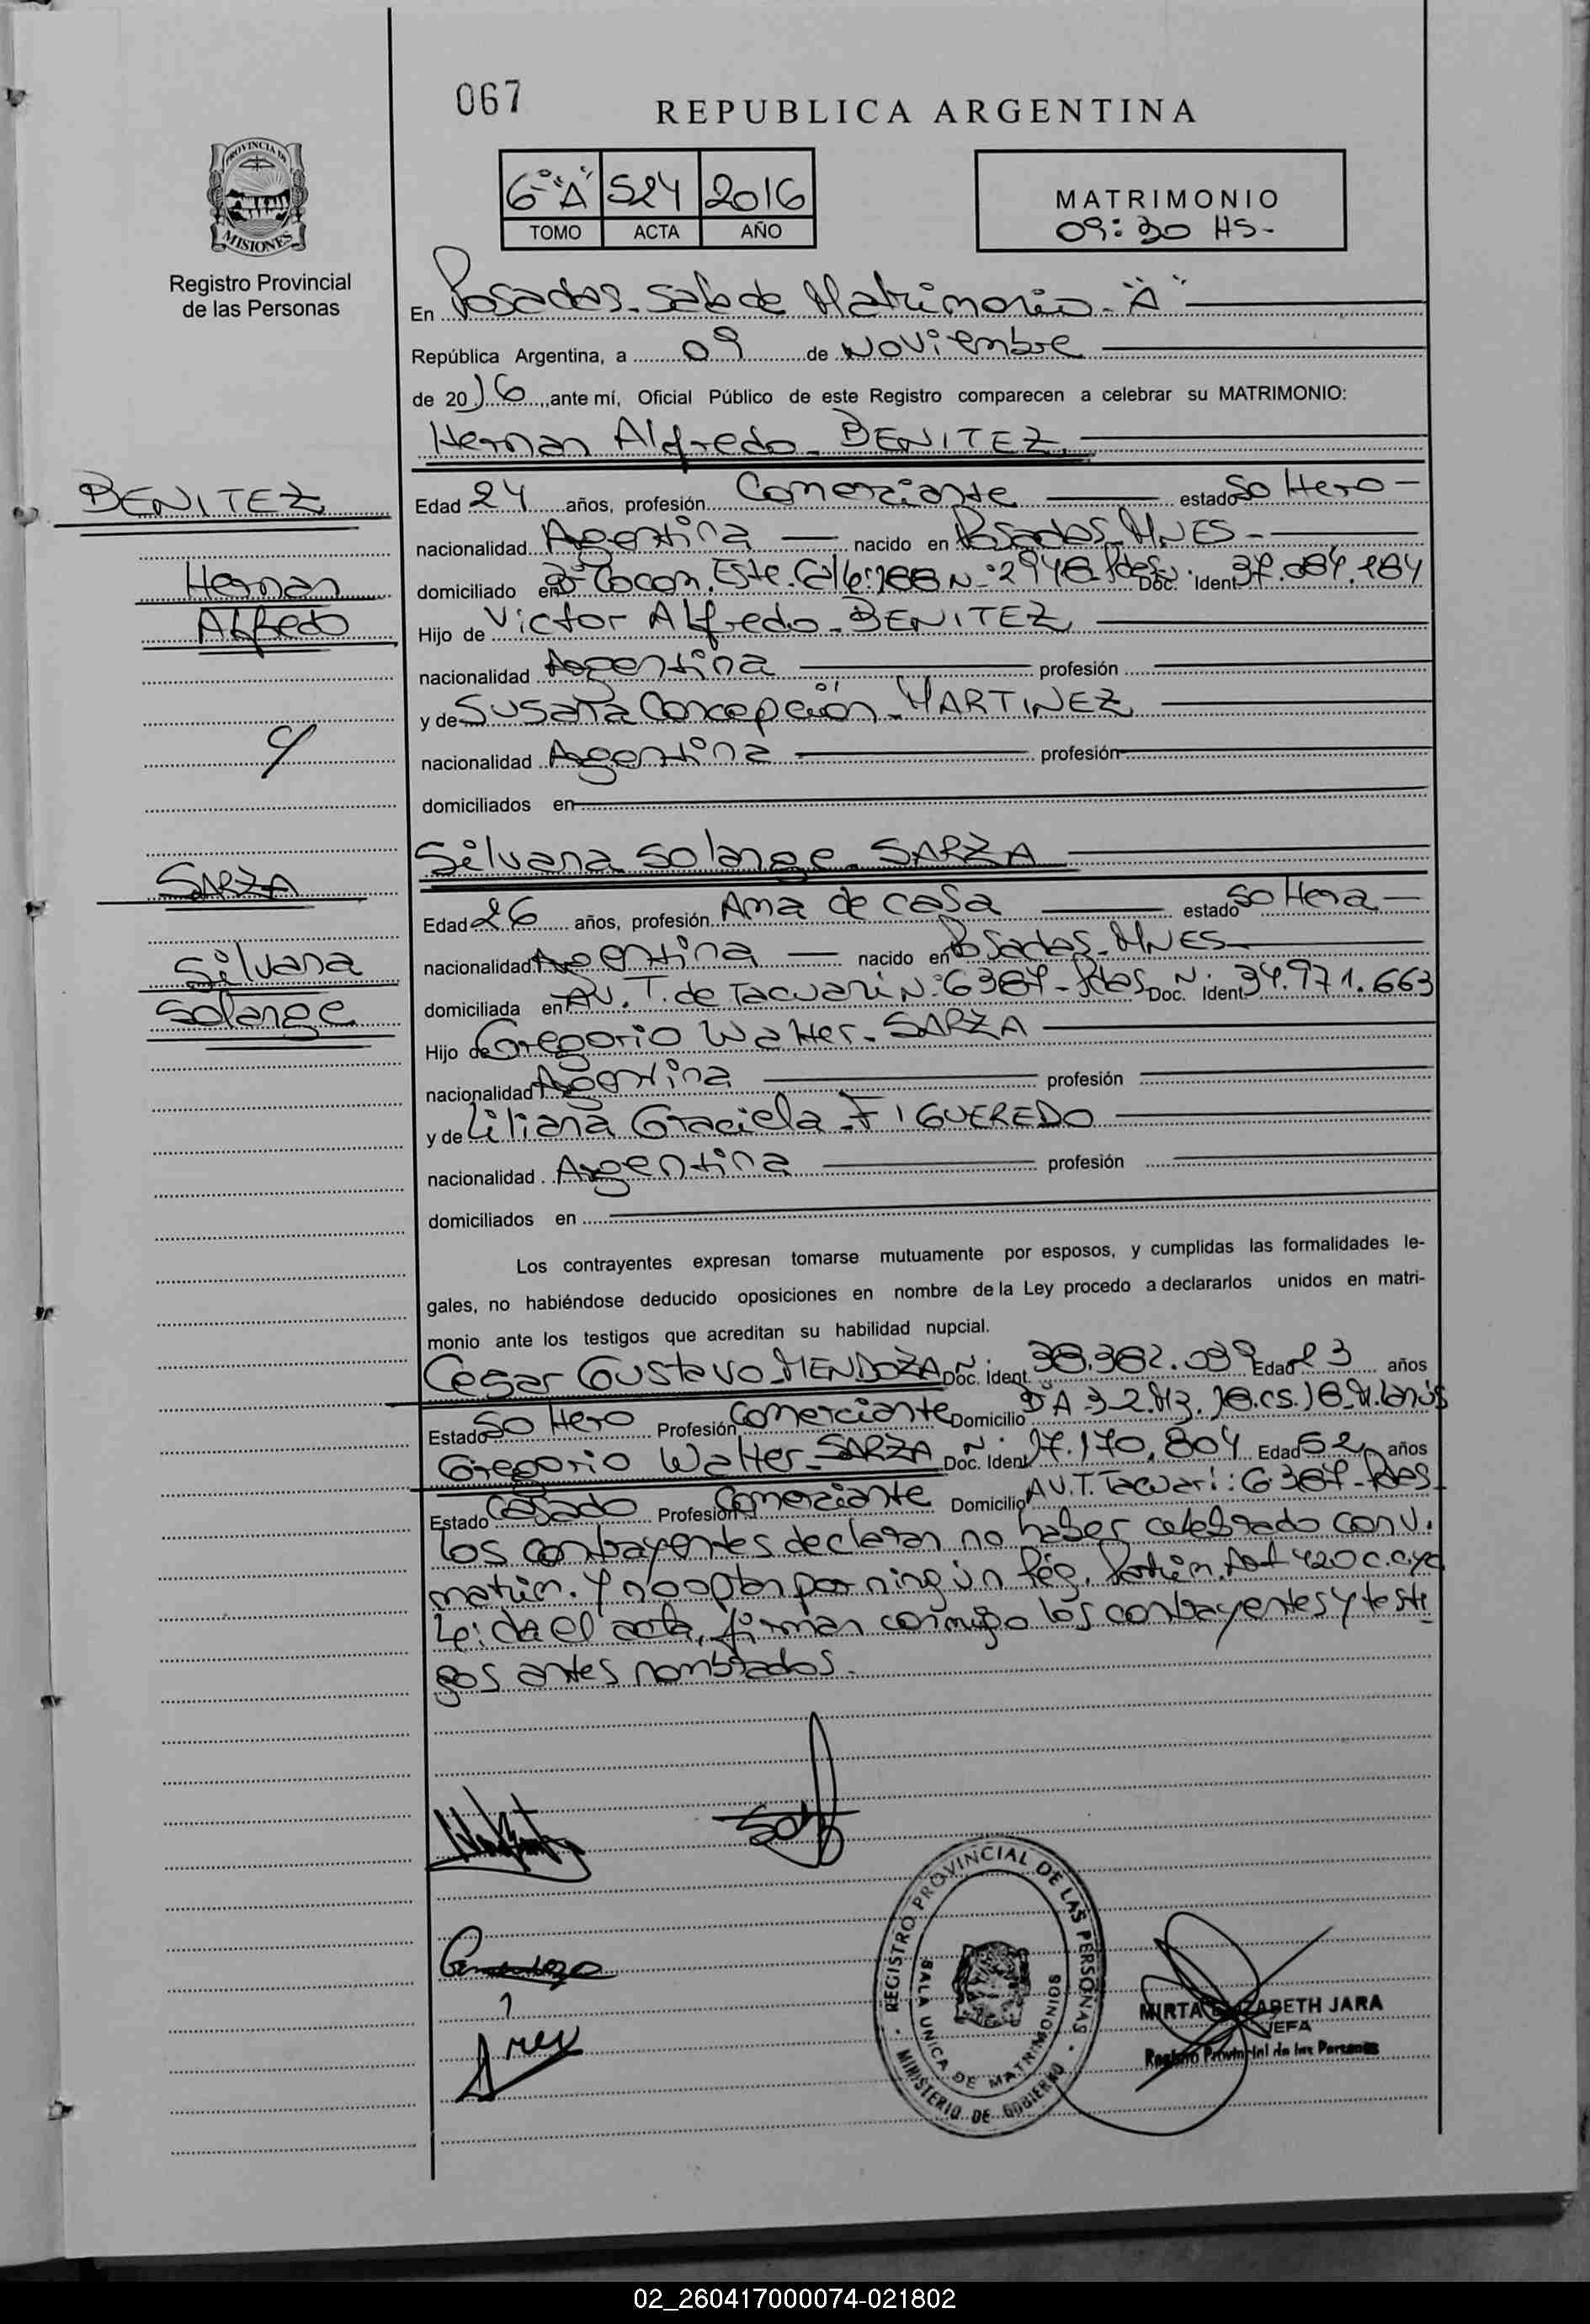 067
REPUBLICA ARGENTINA
PROVINCIA DE
MISIONES
Registro Provincial
de las Personas
6° "A" 524 2016
TOMO ACTA AÑO
MATRIMONIO
09:30 HS-
En Posadas-Sala de Matrimonio-"A"
República Argentina, a 09 de Noviembre
de 2016, ante mí, Oficial Público de este Registro comparecen a celebrar su MATRIMONIO:
Hernan Alfredo-BENITEZ
BENITEZ
Hernan
Alfredo
c/
Edad 24 años, profesión Comerciante estado Soltero-
nacionalidad Argentina nacido en Posadas-MNES-
domiciliado en Este. Calle: 188 N°: 2948-Pdas. Doc. Ident
Hijo de Victor Alfredo-BENITEZ
nacionalidad Argentina profesión
y de Susana Concepción-MARTINEZ
nacionalidad Argentina profesión
domiciliados en
Silvana Solange-SARZA
SARZA
Silvana
Solange
Edad 26 años, profesión Ama de casa estado Soltera-
nacionalidad Argentina nacido en Posadas-MNES-
domiciliada en AV. T. de Tacuari N°: 6367-Pdas N° Doc. Ident 34.971.663
Hijo de Gregorio Walter-SARZA
nacionalidad Argentina profesión
y de Liliana Graciela-FIGUEREDO
nacionalidad Argentina profesión
domiciliados en
Los contrayentes expresan tomarse mutuamente por esposos, y cumplidas las formalidades le-
gales, no habiéndose deducido oposiciones en nombre de la Ley procedo a declararlos unidos en matri-
monio ante los testigos que acreditan su habilidad nupcial.
Cesar Gustavo-MENDOZA Doc. Ident. 38.382.039 Edad 23 años
Estado Soltero Profesión Comerciante Domicilio A 3-2.Mz. 18.cs.
Gregorio Walter-SARZA Doc. Ident 17.170.804 Edad 52 años
Estado Casado Profesión Comerciante Domicilio AV. T. Tacuari: 6367-Pdas
Los contrayentes declaran no haber celebrado conv.
matrim. y no optan por ningún Rég. Patrim. Art 420 c.c.yc
Leida el acta, firman conmigo los contrayentes y testi-
gos antes nombrados.
REGISTRO PROVINCIAL DE LAS PERSONAS
SALA UNICA DE MATRIMONIOS
MINISTERIO DE GOBIERNO
MIRTA ELIZABETH JARA
JEFA
Registro Provincial de las Personas
02_260417000074-021802